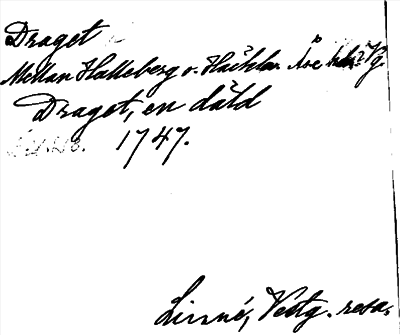 Draget
Mellan Halleberg o. Häcklan Åse hd. Vg
Draget, en däld
1747.
Linné, Vestg. resa.